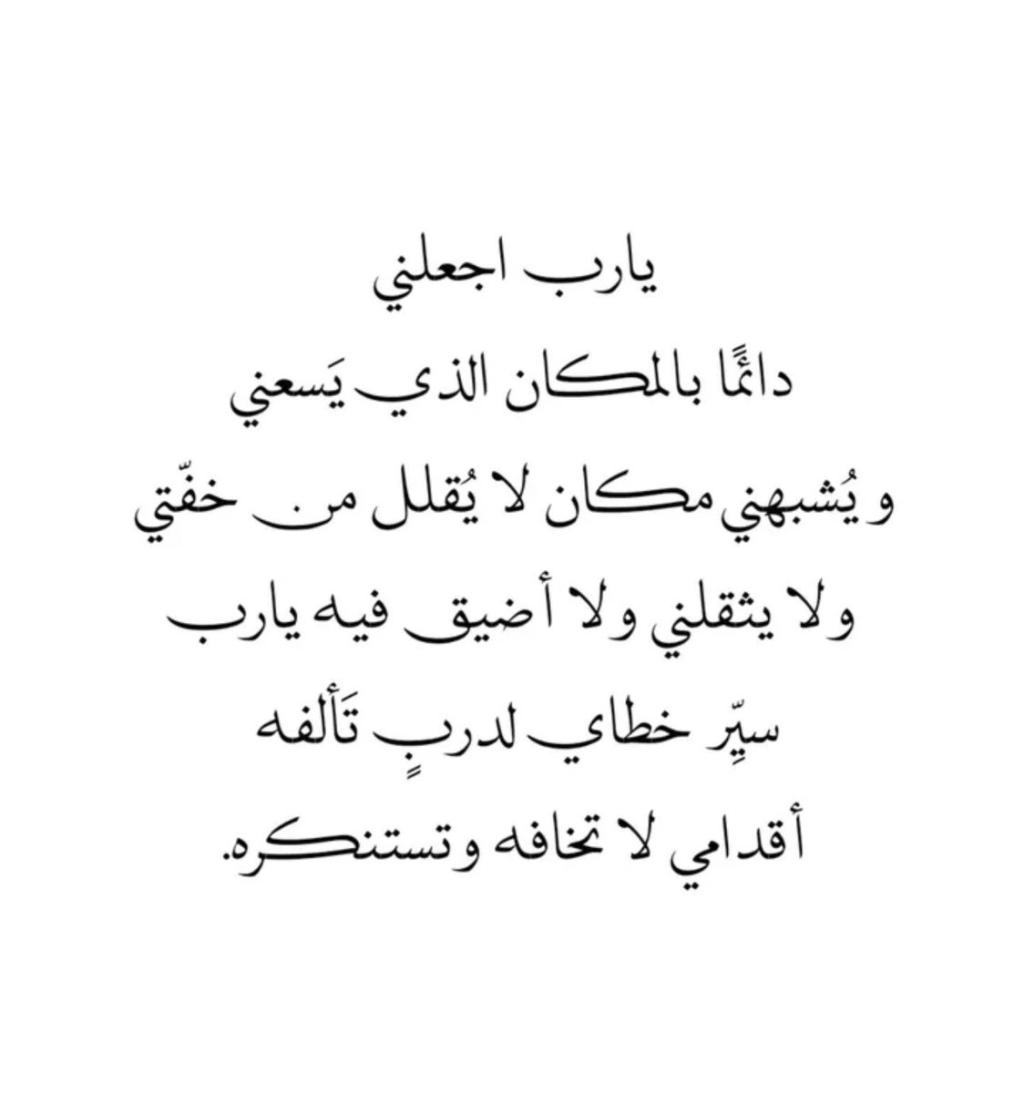 يارب اجعلني
دائمًا بالمكان الذي يَسعني
و يُشبهني مكان لا يُقلل من خفّتي
ولا يثقلني ولا أضيق فيه يارب
سيِّر خطاي لدربٍ تَألفه
أقدامي لا تخافه وتستنكره.